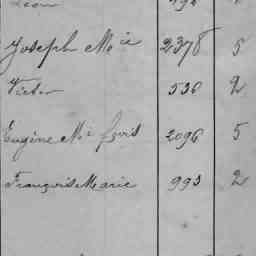 Léon
Joseph Mie 2378 5
Victor 536 2
Eugène Mie 2096 5
Françoise Marie 993 2